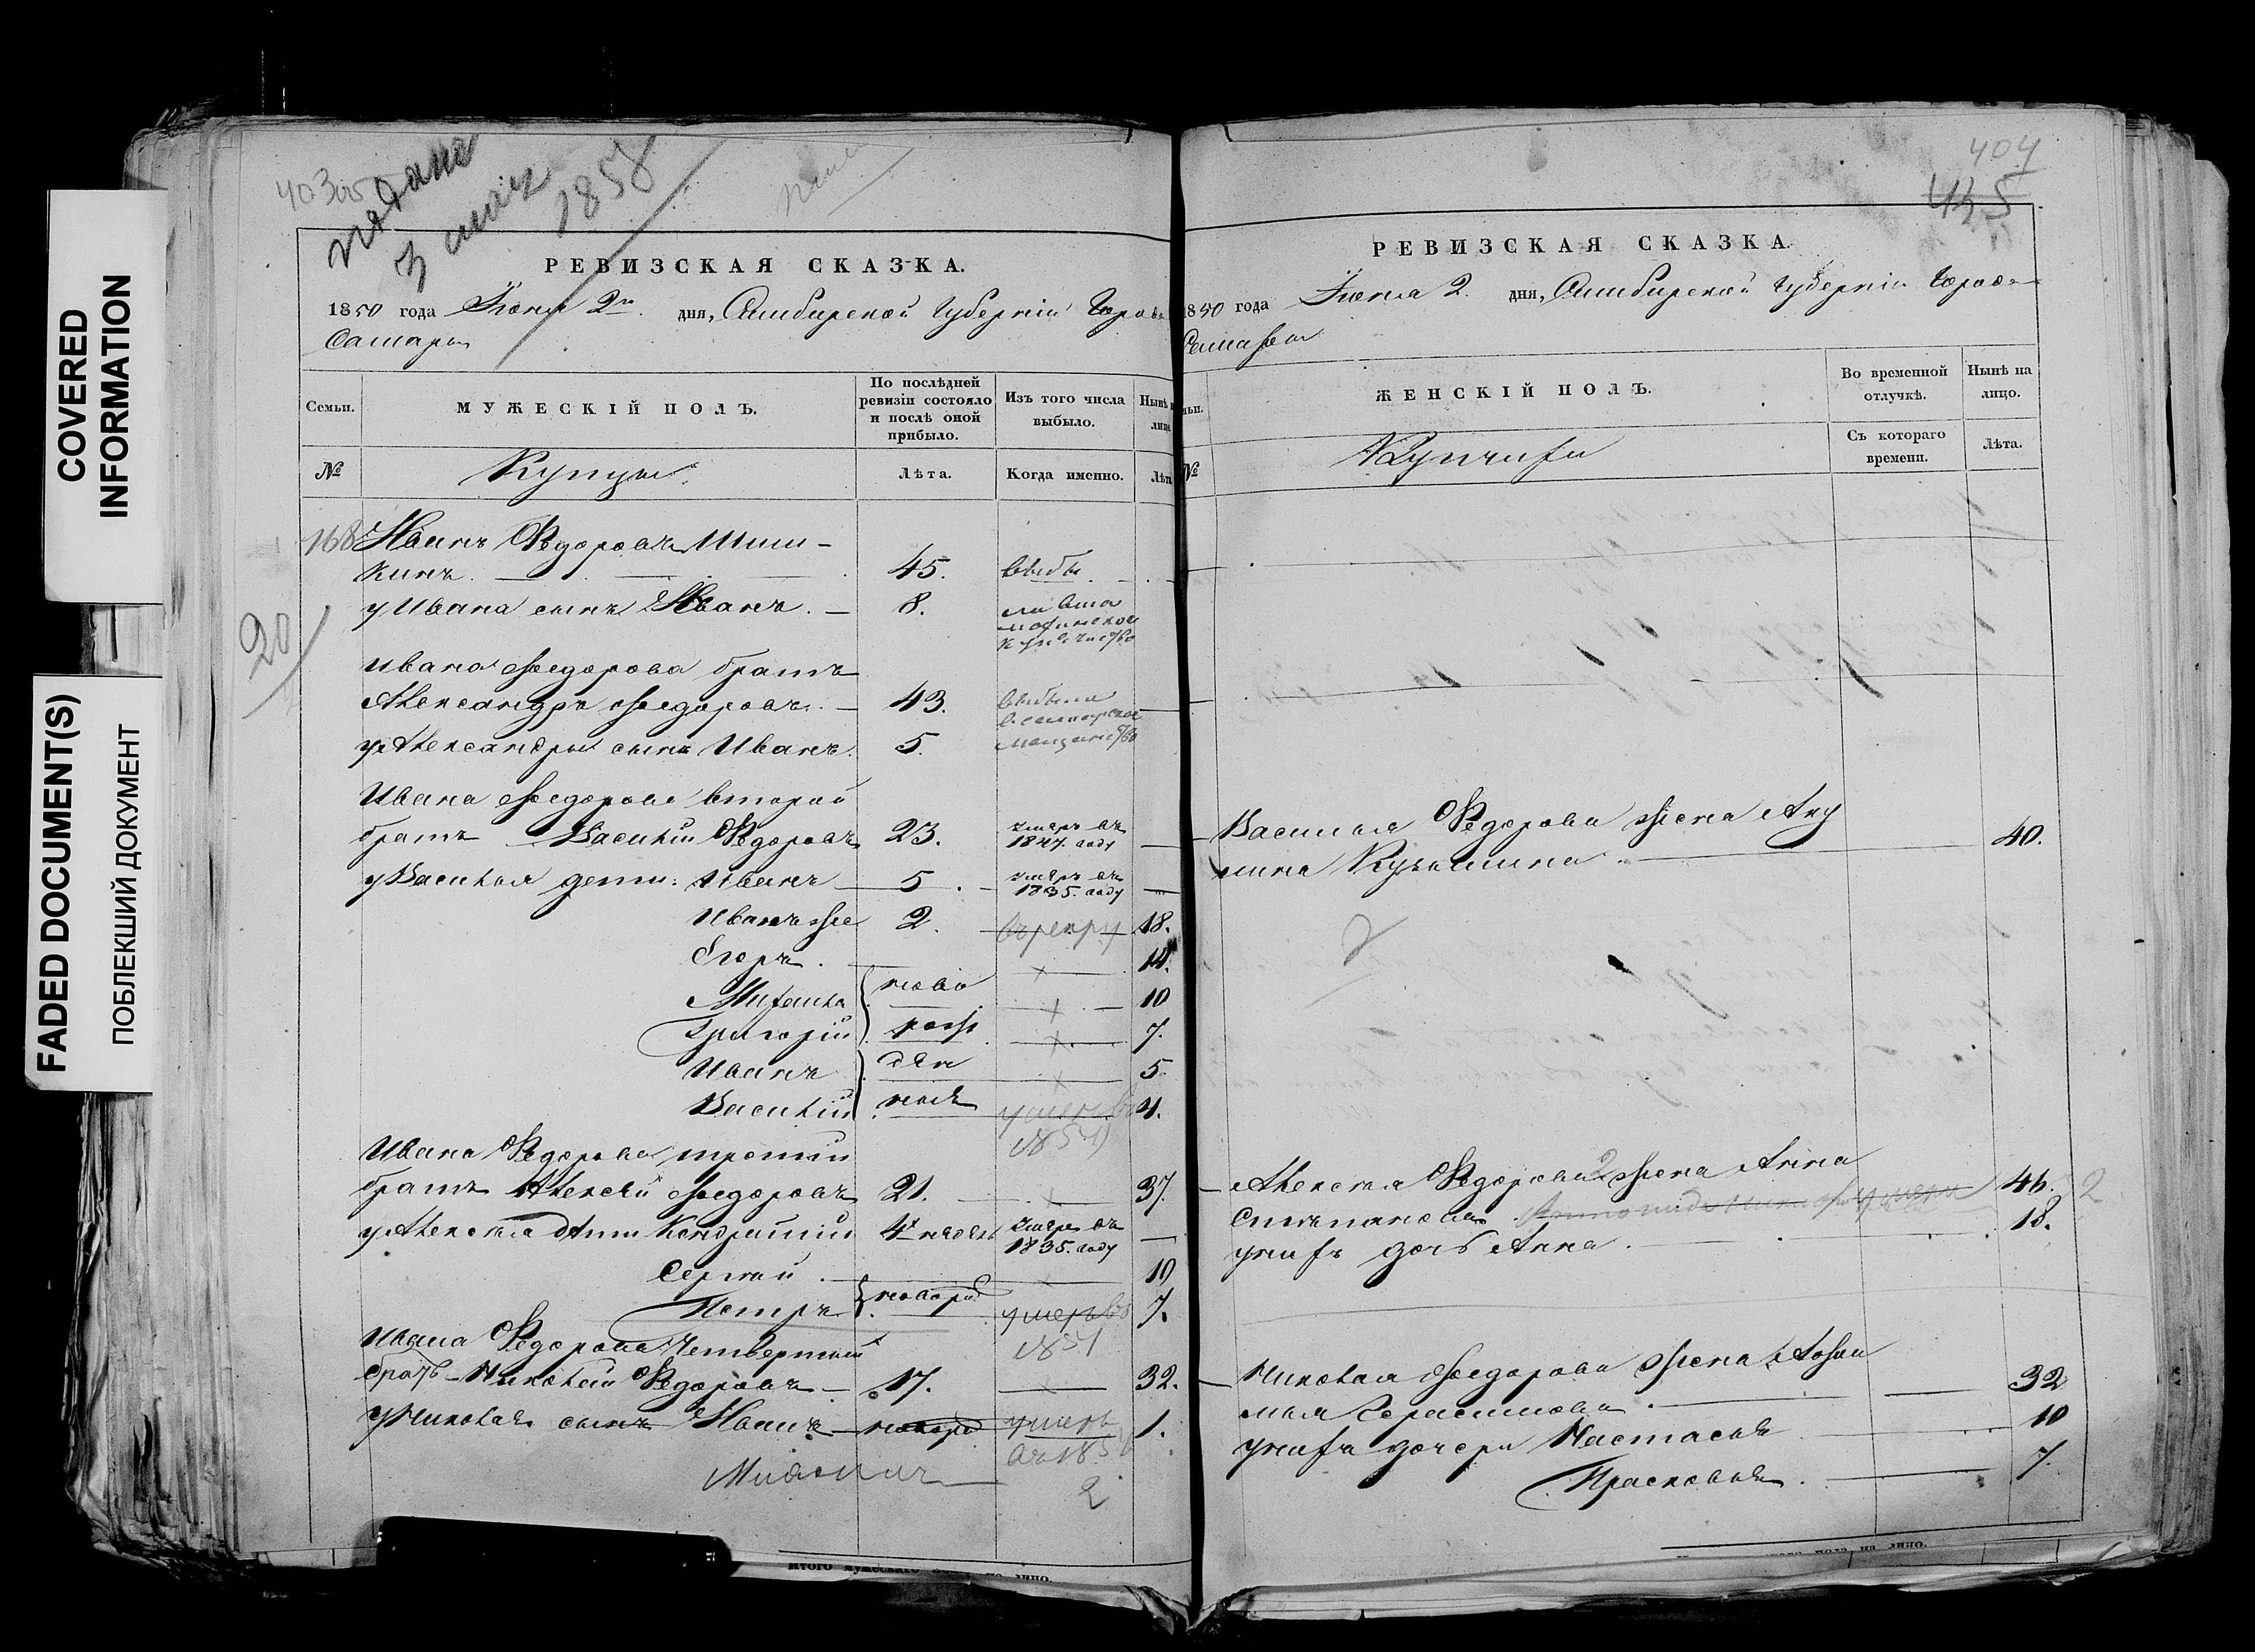 COVERED
INFORMATION
FADED DOCUMENT(S)
ПОБЛЕКШИЙ ДОКУМЕНТ
403об
подана
3 мая
1858
РЕВИЗСКАЯ СКАЗКА.
1850 года Іюня 2го дня, Симбирской Губерніи Города
Самары
Семьи.
МУЖЕСКІЙ ПОЛЪ.
По послѣдней ревизіи состояло и послѣ оной прибыло.
Изъ того числа выбыло.
Нынѣ
лицо
№
Купцы
Лѣта.
Когда именно.
Лѣта
168 Иванъ Ѳедоровъ Шиш-
кинъ. 45. выбы
у Ивана сынъ Иванъ. 8.
20
Ивана Федорова братъ
Александръ Федоровъ. 43. выбыли
у Александры сынъ Иванъ. 5. мещанство
Ивана Федорова второй
братъ Василій Ѳедоровъ 23. умеръ въ 1847. году
у Василья дети: Иванъ 5. умеръ въ 1835. году
Иванъ же 2. въ рекру 18.
Егоръ. 14.
Михаила ново 10
Григорій рож 7.
Иванъ ден 5
Василій ные умеръ 4.
1854
Ивана Ѳедорова третій
братъ Алексѣй Федоровъ 21. 37.
у Алексея дети Кондратій 4 недел умеръ въ 1835. году
Сергей. 10
Петръ новорож умеръ во 7.
1851
Ивана Ѳедорова Четвертый
братъ Николай Ѳедоровъ 17. 32.
у Николая сынъ Иванъ новорож умеръ 1.
въ 185
2
404
РЕВИЗСКАЯ СКАЗКА.
1850 года Іюня 2. дня, Симбирской Губерніи Города
Самары
ЖЕНСКІЙ ПОЛЪ.
Во временной отлучкѣ.
Нынѣ на лицо.
№
Купчихи
Съ котораго времени.
Лѣта.
Василья Ѳедорова жена Аку
лина Кузьмина. 40.
2
Алексея Ѳедорова 2 жена Анна
Степанова 46. 2
у них дочь Анна. 18.
Николая Федорова жена
Герасимова. 32
у них дочери Настасья 10
Прасковья. 7.
итого мужескаго на лицо.
пола на лицо.